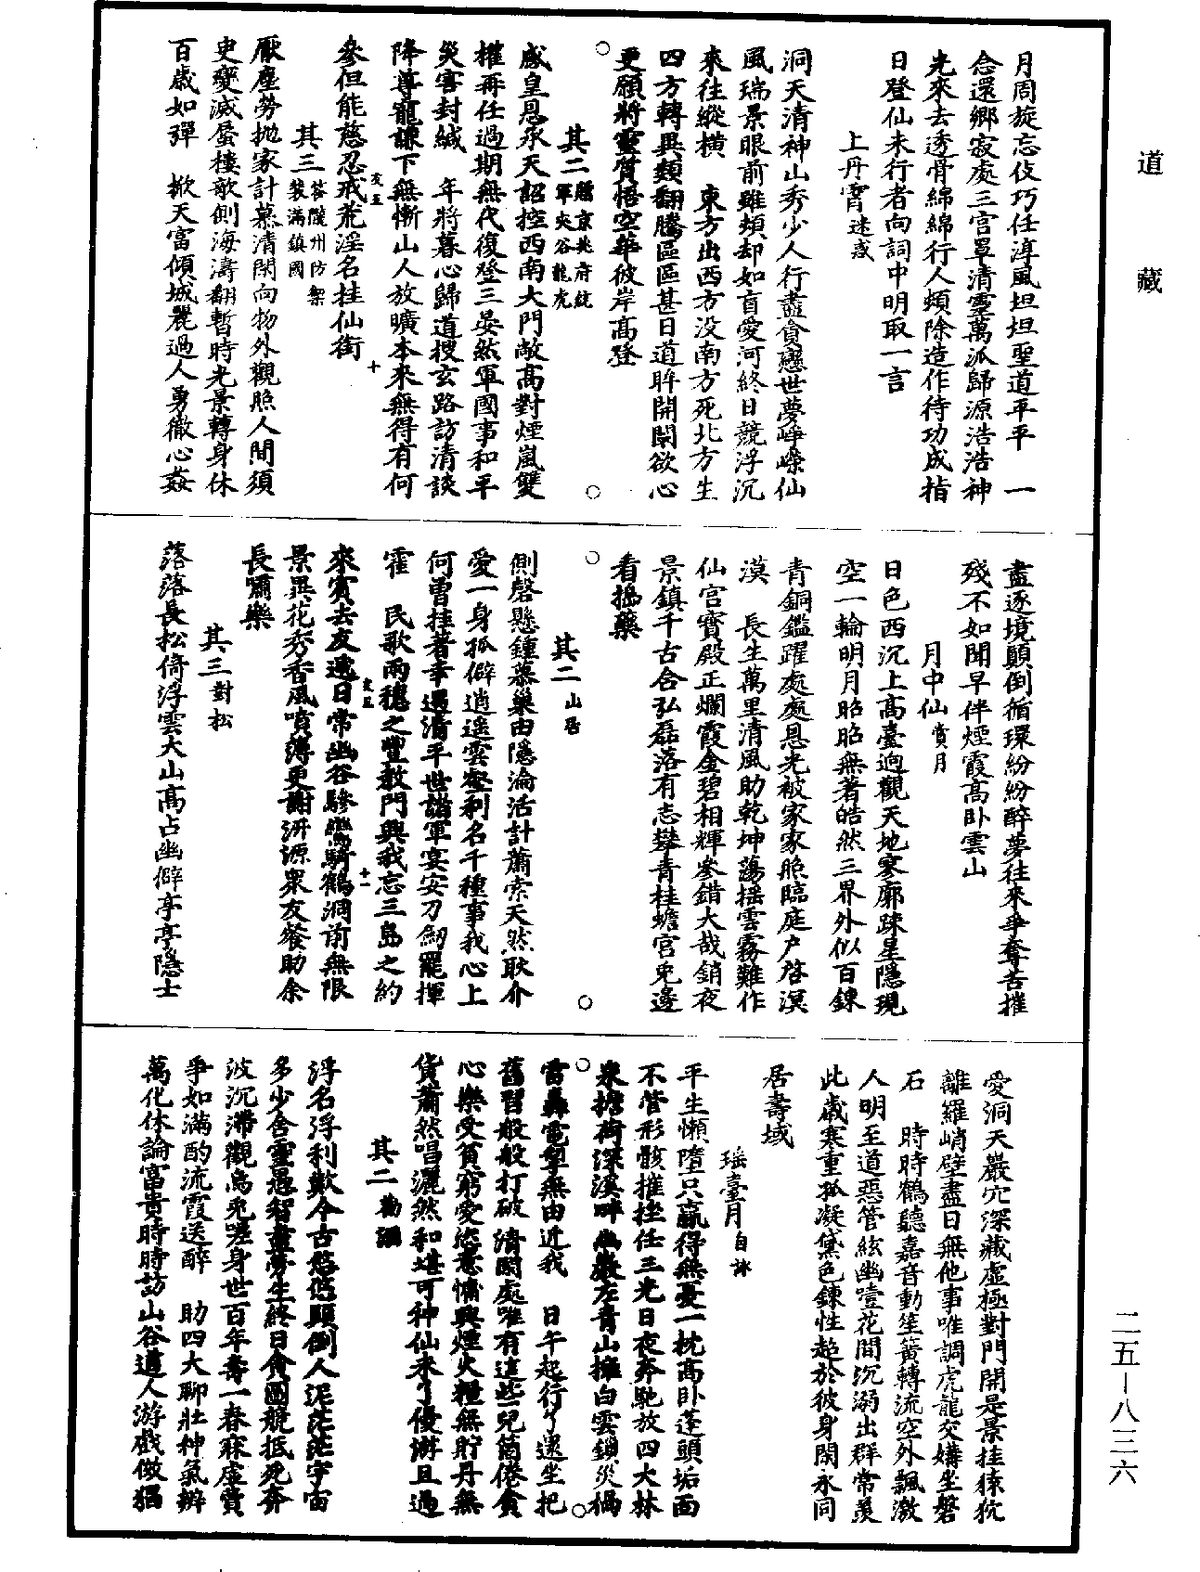 道藏
月周旋忘伎巧任淳風坦坦聖道平平　一
念還鄉寂處三宮罩清靈萬派歸源浩浩神
光來去透骨綿綿行人頻除造作待功成指
日登仙未行者向詞中明取一言
上丹霄迷惑
洞天清神山秀少人行盡貪戀世夢崢嶸仙
風瑞景眼前雖頻却如盲愛河終日競浮沉
來往縱橫　東方出西方没南方死北方生
四方轉異類翻騰區區甚日道眸開闡欲心
更願將靈質悟空華彼岸高登
其二贈京兆府統軍夾谷龍虎
感皇恩承天詔控西南大門敞高對煙嵐雙
權再任過期無代復登三晏然軍國事和平
災害封緘　年將暮心歸道搜玄路訪清談
降尊寵謙下無慚山人放曠本來無得有何
參但能慈忍戒荒淫名挂仙銜
友五
十
其三答隴州防禦裴滿鎮國
厭塵勞拋家計慕清閑向物外觀照人間須
史變滅蜃樓歌側海濤翻暫時光景轉身休
百歲如彈　掀天富傾城麗過人勇徹心姦
盡逐境顛倒循環紛紛醉夢往來爭奪苦摧
殘不如聞早伴煙霞高卧雲山
月中仙賞月
日色西沉上高臺逈觀天地寥廓踈星隱現
空一輪明月昭昭無著皓然三界外似百鍊
青銅鑑躍處處恩光被家家照臨庭户啓溟
漠　長生萬里清風助乾坤蕩摇雲霧難作
仙宮寶殿正爛霞金碧相輝參錯大哉銷夜
景鎮千古含弘磊落有志攀青桂蟾宮兔邊
看搗藥
其二山居
側磬懸鍾慕巢由隱淪活計蕭索天然耿介
愛一身孤僻逍遥雲壑利名千種事我心上
何曾挂著幸遇清平世諧軍宴安刀劒罷揮
霍　民歌兩穗之豐教門興我忘三島之約
來賓去友遞日常幽谷驂鸞騎鶴洞前無限
友五
十一
景異花秀香風噴薄更謝汧源衆友飡助余
長嘯樂
其三對松
落落長松倚浮雲大山高占幽僻亭亭隱士
愛洞天巖穴深藏虚極對門開是景挂猿狖
離羅峭壁盡日無他事唯調虎龍交媾坐磐
石　時時鶴聽嘉音動笙簧轉流空外飄激
人明至道惡管絃幽噎花間沉溺出群常羨
此歲寒重孤凝黛色鍊性超於彼身閑永同
居壽域
瑶臺月自詠
平生懶墮只贏得無憂一枕高卧蓬頭垢面
不管形骸摧挫任三光日夜奔馳放四大林
泉擔荷深溪畔幽巖左青山擁白雲鎖災禍
雷轟電掣無由近我　日午起行行還坐把
舊習般般打破清閑處唯有這些兒箇倦貪
心樂受貧窮愛恣意慵興煙火糧無貯丹無
貨蕭然唱灑然和堪可神仙來了優游且過
其二勸誡
浮名浮利歎今古悠悠顛倒人泥茫茫宇宙
多少含靈愚智盡夢生終日貪圖競抵死奔
波沉滯觀烏兎嗟身世百年壽一春寐虛費
爭如滿酌流霞送醉　助四大聊壯神氣辨
萬化休論富貴時時訪山谷道人游戲傚猖
二五－八三六